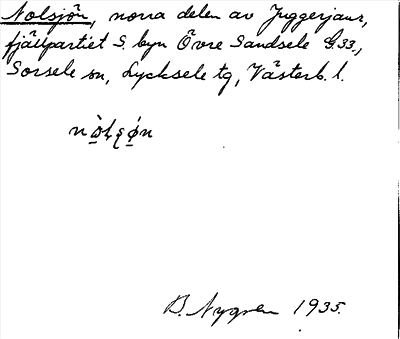 Nolsjön, norra delen av Juggerjaur,
fjällpartiet S. byn Övre Sandsele G.33.,
Sorsele sn, Lycksele tg, Västerb. l.
B. Nygren 1935.